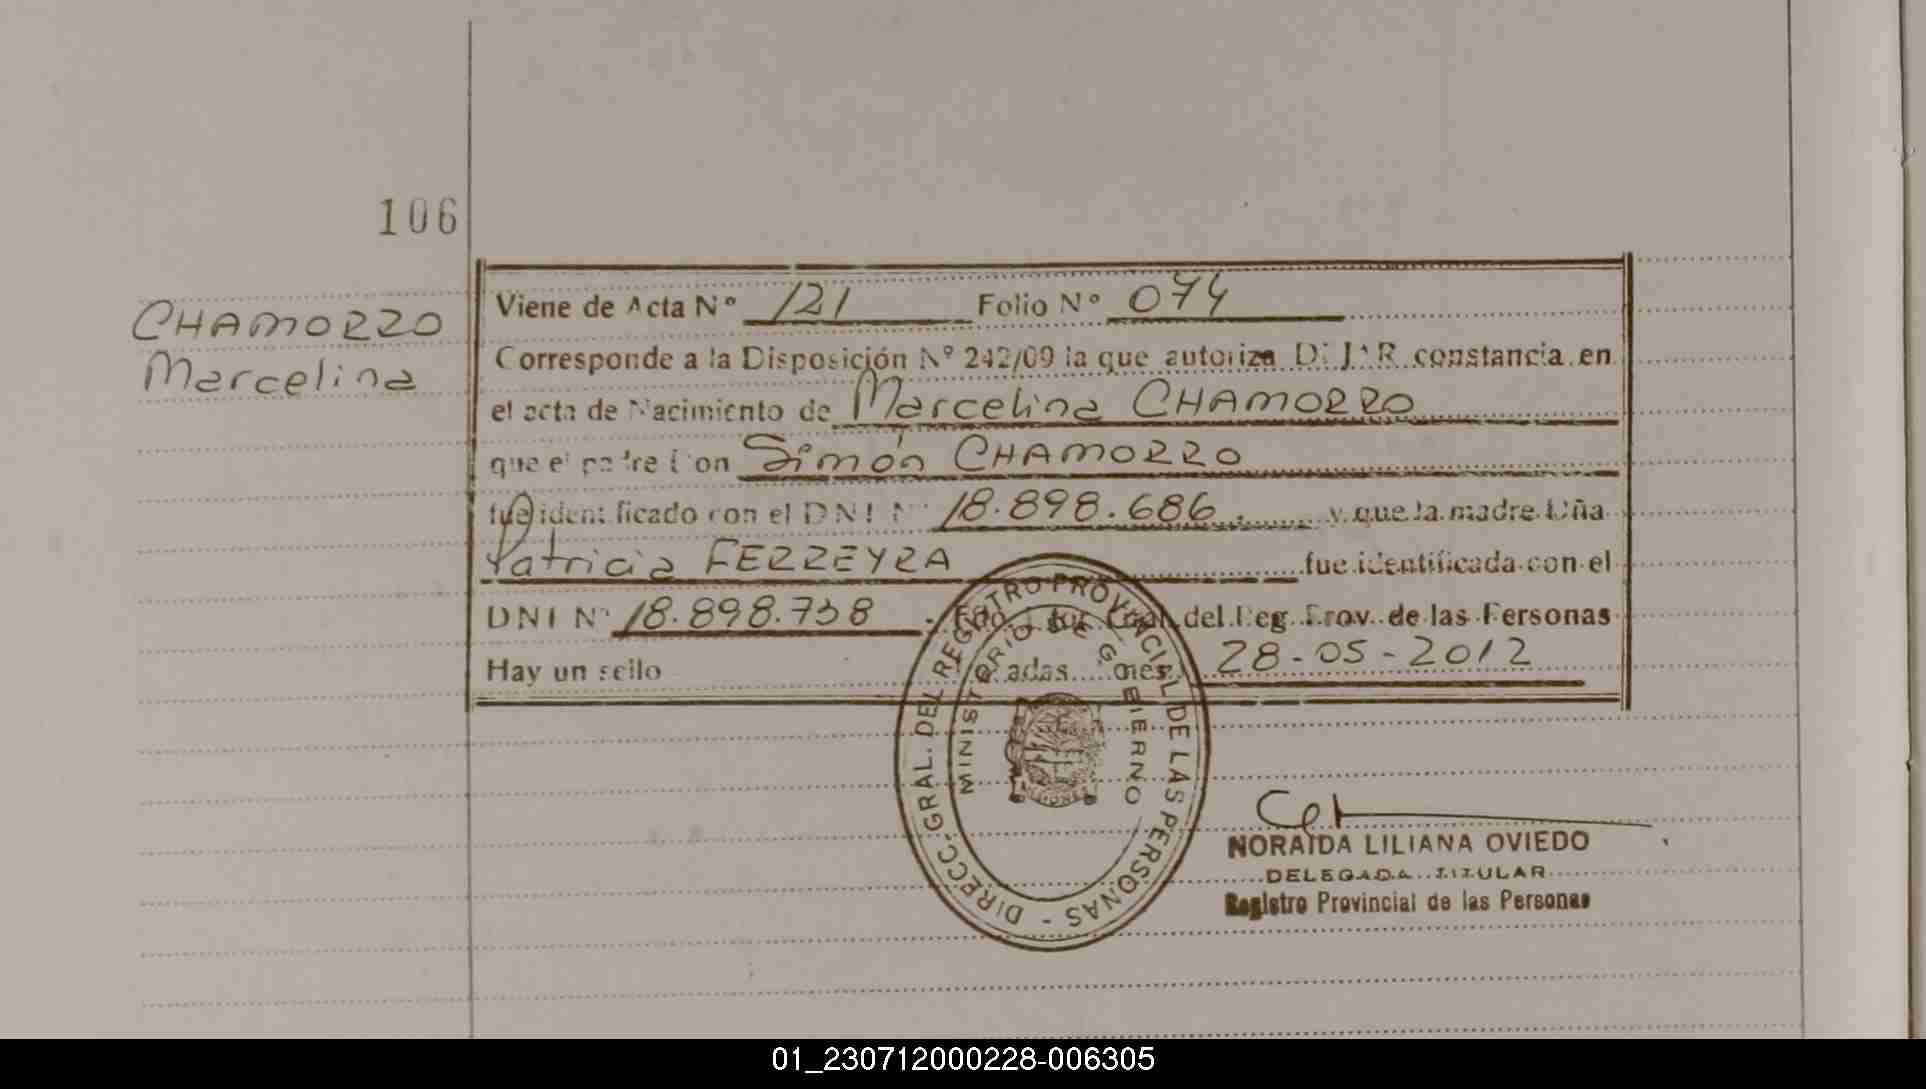 106
CHAMORRO
Marcelina
Viene de Acta Nº 121 Folio Nº 074
Corresponde a la Disposición Nº 242/09 la que autoriza DEJAR constancia en
el acta de Nacimiento de Marcelina CHAMORRO
que el padre Don Simón CHAMORRO
fue identificado con el DNI Nº 18.898.686. y que la madre Dña
Patricia FERREYRA fue identificada con el
DNI Nº 18.898.738 - Fdo. del Reg. Prov. de las Personas
Hay un sello 28-05-2012
DIRECC. GRAL. DEL REGISTRO PROVINCIAL DE LAS PERSONAS -
MINISTERIO DE GOBIERNO
MISIONES
NORAIDA LILIANA OVIEDO
DELEGADA TITULAR
Registro Provincial de las Personas
01_230712000228-006305